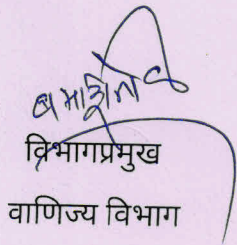 विभागप्रमुख
वाणिज्य विभाग